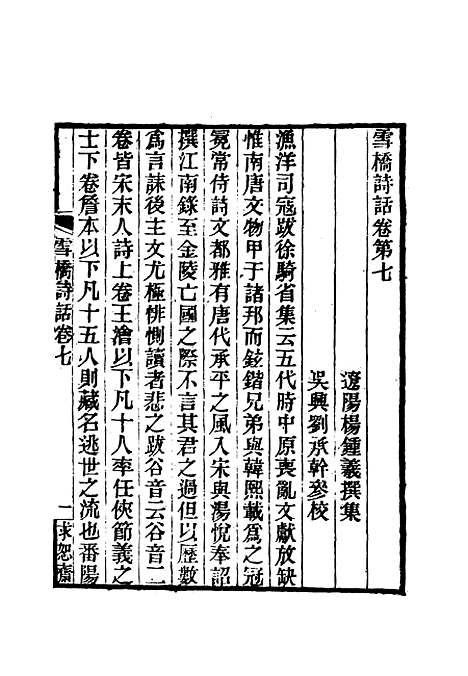 雪橋詩話卷第七
遼陽楊鍾羲撰集
吳興劉承幹參校
漁洋司寇跋徐騎省集云五代時中原喪亂文獻放缺
惟南唐文物甲于諸邦而鉉鍇兄弟與韓熙載爲之冠
冕常侍詩文都雅有唐代承平之風入宋與湯悅奉詔
撰江南錄至金陵亡國之際不言其君之過但以歷數
爲言誄後主文尤極悱惻讀者悲之跋谷音云谷音二
卷皆宋末人詩上卷王澮以下凡十人率任俠節義之
士下卷詹本以下凡十五人則藏名逃世之流也番陽
雪橋詩話卷七
一
求恕齋